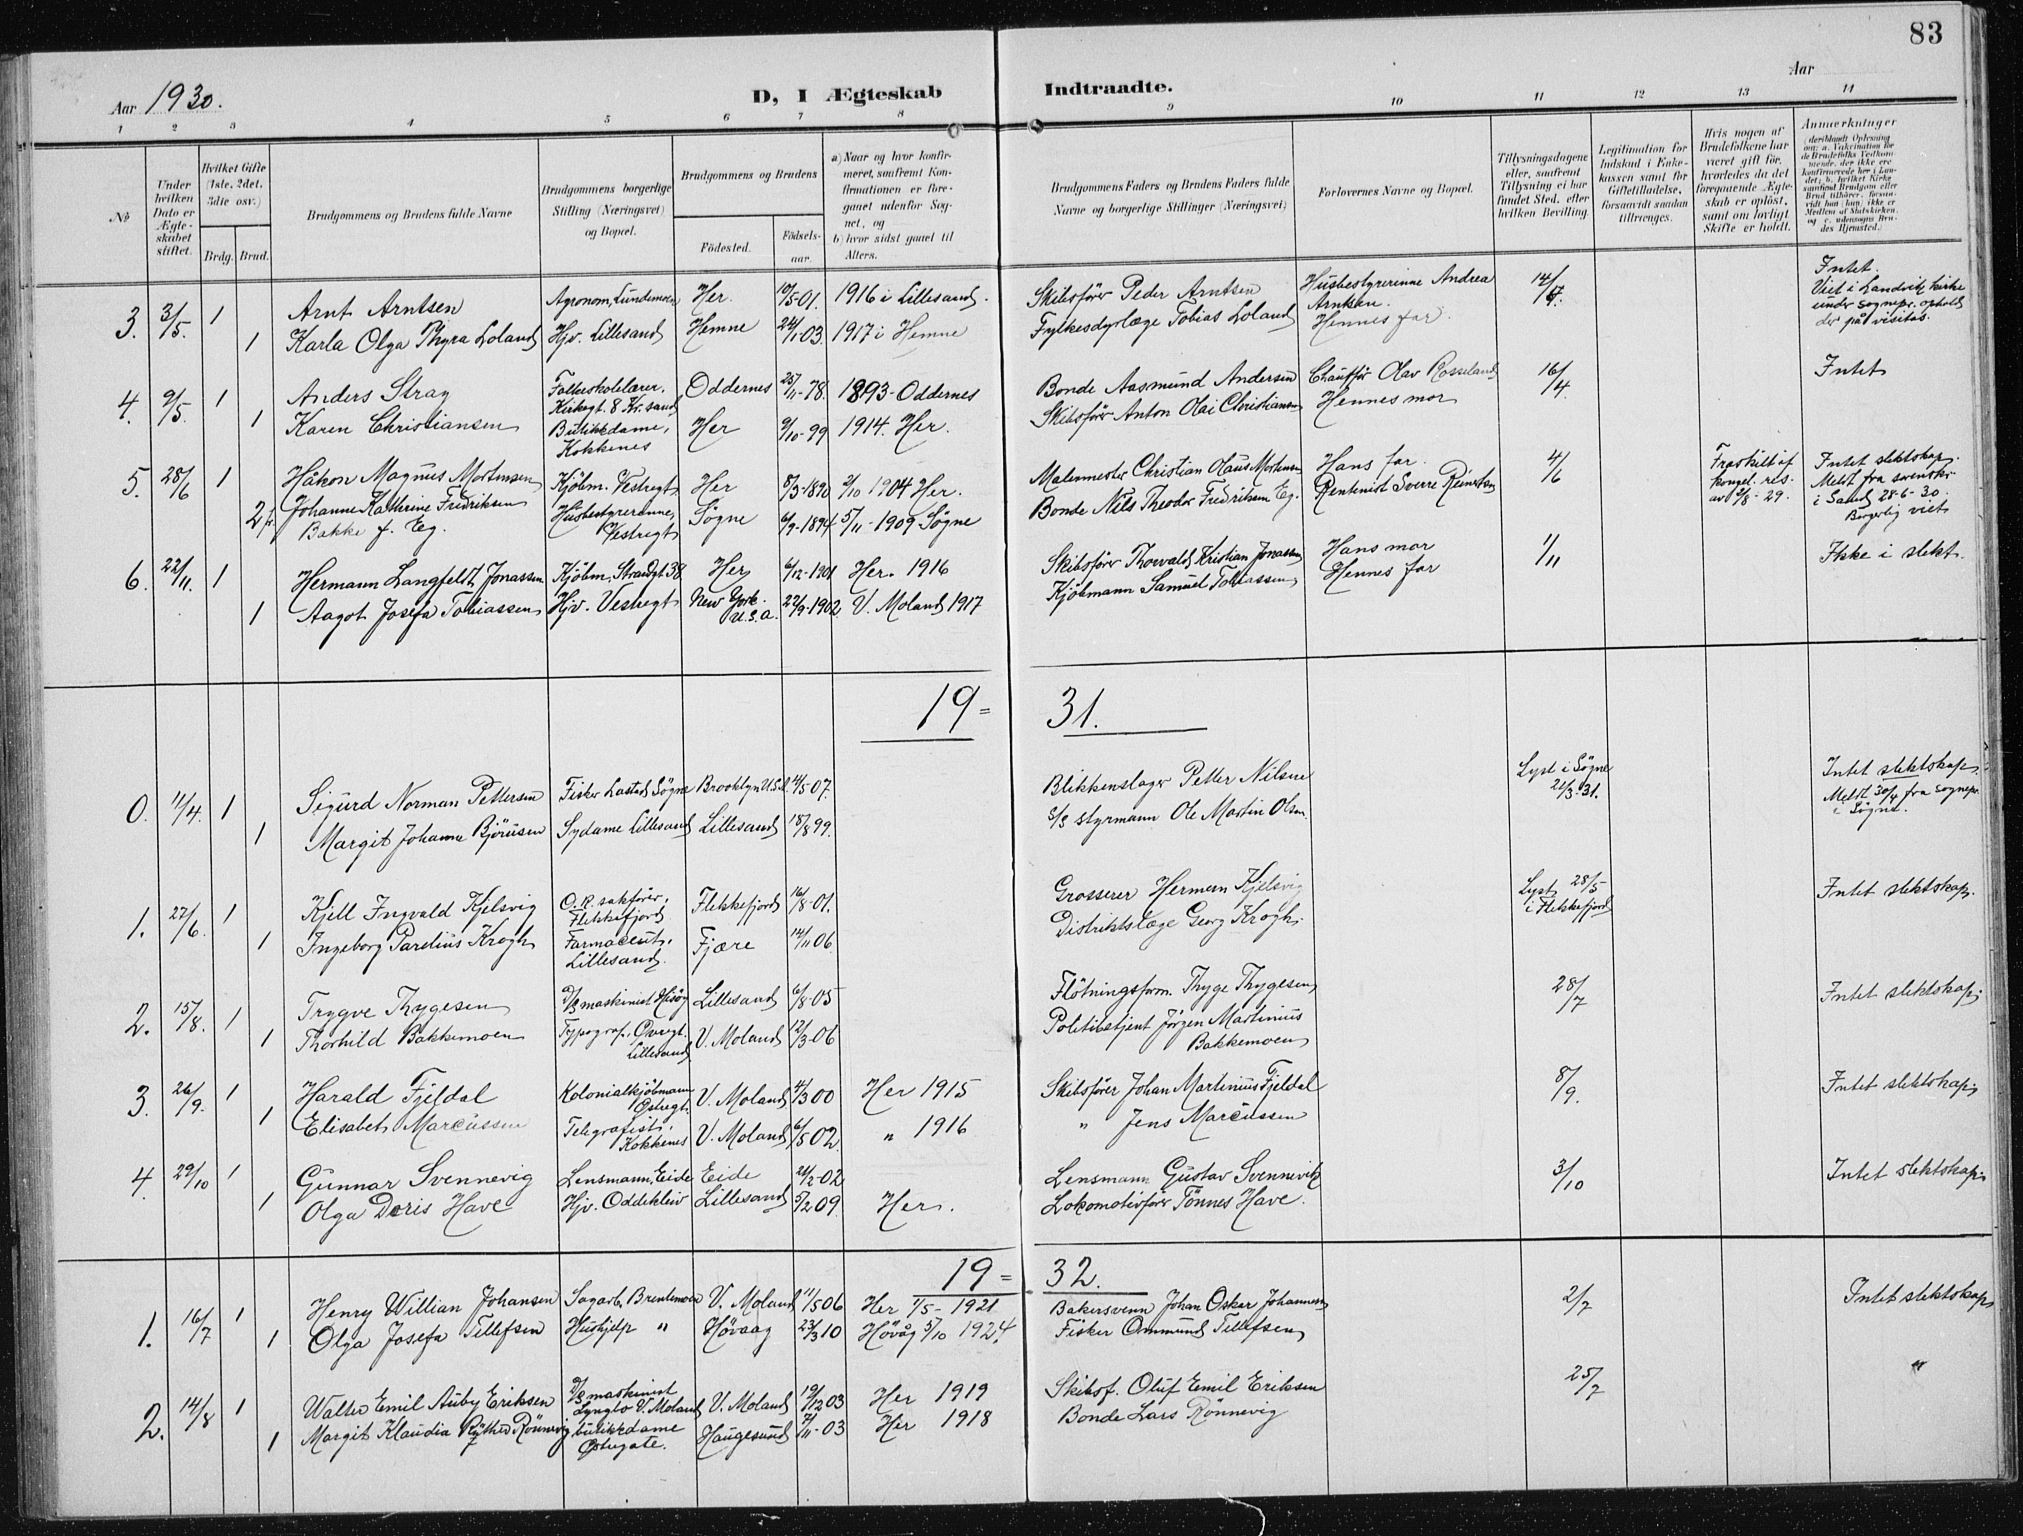 83
Aar 1930.
D, I Ægteskab
Indtraadte.
Aar
1 2 3 4 5 6 7 8 9 10 11 12 13 14
No
Under hvilken Dato er Ægteskabet stiftet.
Hvilket Gifte (1ste, 2det, 3die osv.)
Brdg. Brud.
Brudgommens og Brudens fulde Navne
Brudgommens borgerlige Stilling (Næringsvei) og Bopæl.
Brudgommens og Brudens
Födested.
Födsels-aar.
a) Naar og hvor konfirmeret, saafremt Konfirmationen er foregaaet udenfor Sognet, og
b) hvor sidst gaaet til Alters.
Brudgommens Faders og Brudens Faders fulde Navne og borgerlige Stillinger (Næringsvei)
Forlovernes Navne og Bopæl.
Tillysningsdagene eller, saafremt Tillysning ei har fundet Sted, efter hvilken Bevilling.
Legitimation for Indskud i Enkekassen samt for Giftetilladelse, forsaavidt saadan tiltrænges.
Hvis nogen af Brudefolkene har været gift för, hvorledes da det foregaaende Ægteskab er oplöst, samt om lovligt Skifte er holdt.
Anmærkninger
3. 3/5. 1 Arnt Arntsen Agronom, Lundemoen Her. 10/5-01. 1916 i Lillesand. Skibsfører Peder Arntsen Husbestyrerinne Andrea Arntsen. 14/4. Intet.
1 Karla Olga Thyra Loland Hjv. Lillesand Hemne 24/1-03. 1917 i Hemne Fylkesdyrlæge Tobias Loland Hennes far. Viet i Landvik kirke under sognepr. ophold der på visitas.
4. 9/5. 1 Anders Stray Folkeskolelærer. Kirkegt. 8 Kr.sand Oddernes 25/11-78. 1893 - Oddernes Bonde Aasmund Andersen Chauffør Olav Rosseland 16/4. Intet
1 Karen Christiansen Butikkdame, Kokkenes Her 9/10-99 1914. Her. Skibsfører Anton Olai Christiansen Hennes mor
5. 28/6 1 Håkon Magnus Mortensen Kjøbm. Vestregt. Her 5/3-1890 2/10 1904 Her. Malermester Christian Olaus Mortensen Hans far. 4/6 Fraskilt af kongel. res. av 5/8-29. Intet slektskap.
2 fr. Johanne Kathrine Fredriksen Bakke f. Eg. Husbestyrerinne, Vestregt Søgne 6/9-1894 5/11-1909 Søgne Bonde Nils Theodor Fredriksen Eg. Rentenist Sverre Reinertsen Meldt fra svenskr. i Sand 28-6-30. Borgerlig viet
6. 22/11. 1 Hermann Langfeldt Jonassen Kjøbm. Strandgt 38 Her 4/12-1901 Her. 1916 Skibsfører Thorvald Kristian Jonassen Hans mor 1/11 Ikke i slekt.
1 Aagot Josefa Tobiassen Hjv. Vestregt New York. U.S.A. 27/9-1902. V. Moland 1917 Kjøbmann Samuel Tobiassen Hennes far
19 = 31.
0. 11/4. 1 Sigurd Norman Pettersen Fisker Lastad Søgne Brooklyn U.S.A. 4/5 07. Blikkenslager Petter Nilsen Lyst i Søgne 21/3-31. Intet slektskap.
1 Margit Johanne Bjørnsen Sydame Lillesand Lillesand 18/8 99. styrmann Ole Martin Olsen Meldt 30/4 fra sognepr. i Søgne.
1. 27/6. 1 Kjell Ingvald Kjelsvig O.R. sakfører. Flekkefjord Flekkefjord 16/8-01. Grosserer Hermann Kjelsvig Lyst 28/5 i Flekkefjord Intet slektskap.
1 Ingeborg Parelius Krogh Farmaceut. Lillesand. Fjære 14/11 06. Distriktslæge Georg Krogh.
2. 15/8. 1 Trygve Thygesen maskinist Hisøy Lillesand 6/8-05 Fløtningsform. Thyge Thygesen 28/7 Intet slektskap.
1 Thorhild Bakkemoen Typograf. Øvregt. Lillesand V. Moland 12/3-06 Politibetjent Jørgen Martinius Bakkemoen
3. 26/9. 1 Harald Fjeldal Kolonialkjøbmann Østregt. V. Moland 4/3 00 Her 1915 Skibsfører Johan Martinius Fjeldal 8/9. Intet slektskap
1 Elisabet Marcussen Telegrafist. Kokkenes V. Moland 6/5 02 " 1916 " Jens Marcussen
4. 29/10 1 Gunnar Svennevig Lensmann, Eide Eide 21/2-02 Lensmann Gustav Svennevik 3/10 Intet slektskap
1 Olga Doris Have Hjv. Oddekleiv Lillesand 5/2 09. Her. Lokomotivfører Tønnes Have.
19 = 32.
1. 16/7 1 Henry Willian Johansen Sagarb. Brentemoen V. Moland 11/5 06 Her 1/5 - 1921 Bakersvenn Johan Oskar Johannesen 2/7 Intet slektskap
1 Olga Josefa Tellefsen Hushjelp " Høvaag 23/3 10 Høvåg 5/10 1924. Fisker Ommund Tellefsen
2. 14/8 1 Walter Emil Auby Eriksen maskinist Lyngto V. Moland V. Moland 19/12 03 Her 1919 Skibsf. Oluf Emil Eriksen 25/7 "
1 Margit Klaudia Rønnevig butikkdame Østregate. Haugesund 7/11-03 Her 1918 Bonde Lars Rønnevig